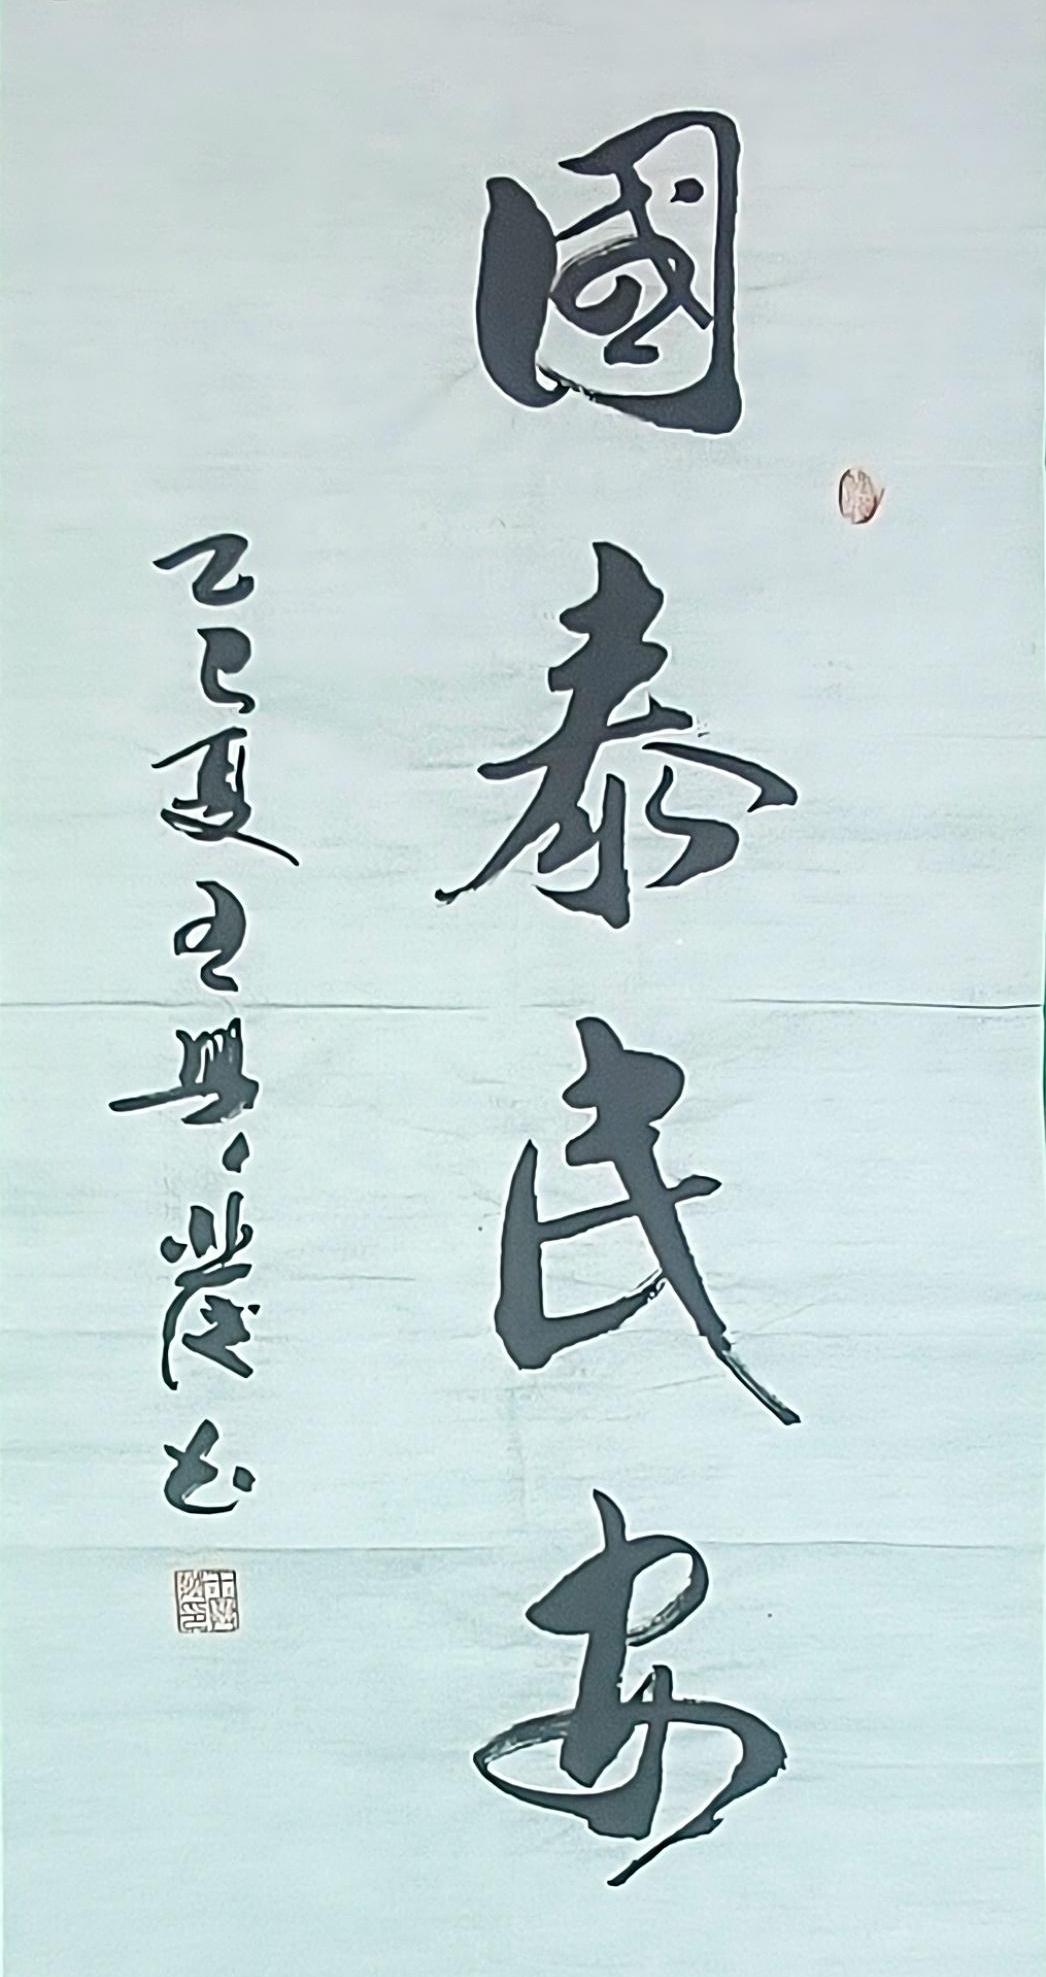 國泰民安
乙巳夏王興發书